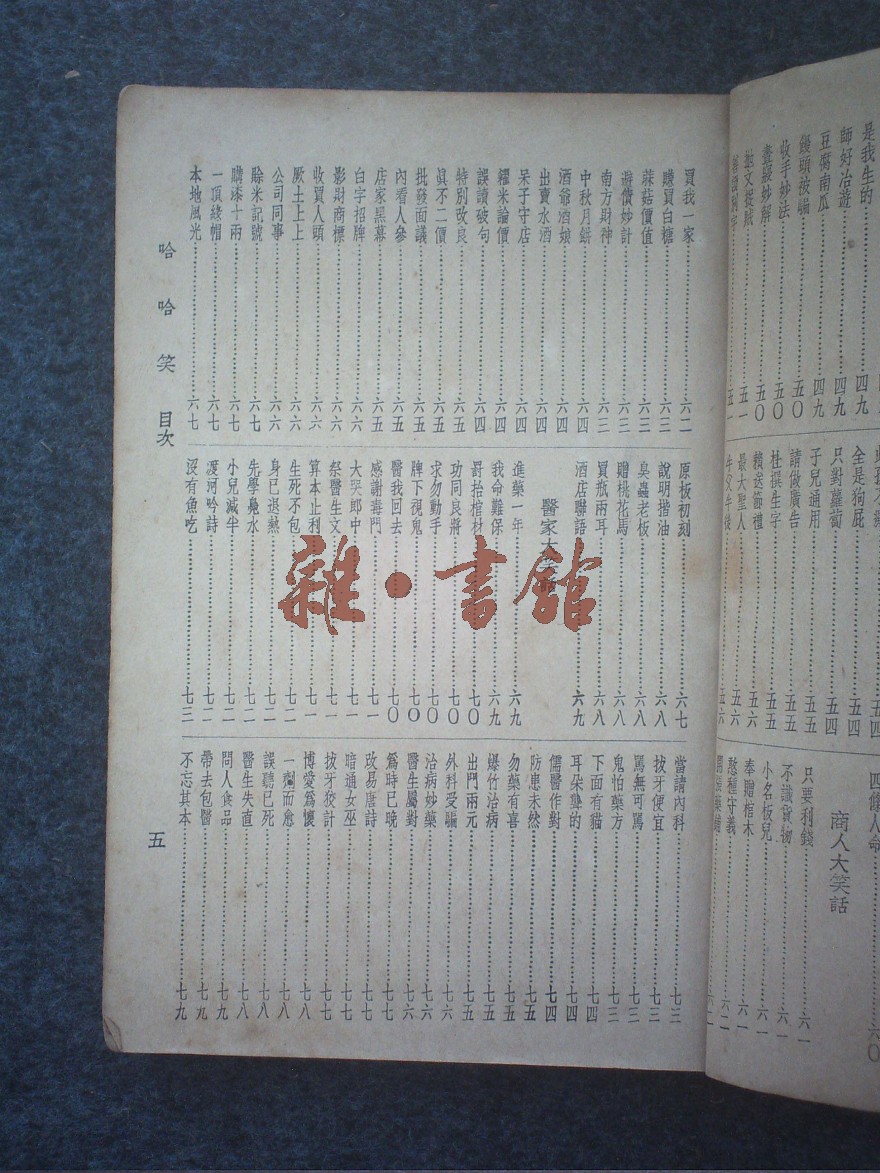 是我生的 四九
師好冶遊 四九
豆腐南瓜 四九
饅頭被騙 五〇
收手妙法 五〇
晝寢妙解 五〇
拋文捉賊 五一
全是狗屁 五四
只對蘿蔔 五四
子兒通用 五五
請做廣告 五五
杜撰生字 五五
賴送節禮 五六
最大聖人 五六
四條人命 六〇
商人大笑話
只要利錢 六一
不識貨物 六一
小名板兒 六一
奉贈棺木 六一
憨種守義 六二
買我一家 六二
賺買白糖 六三
蘑菇價值 六三
避債妙計 六三
南方財神 六三
中秋月餅 六四
酒爺酒娘 六四
出賣水酒 六四
呆子守店 六四
糴米論價 六四
誤讀破句 六四
特別改良 六五
眞不二價 六五
批發面議 六五
內看人參 六五
店家黑幕 六五
白字招牌 六六
影財商標 六六
收買人頭 六六
厥土上上 六六
公司同事 六六
賒米記號 六七
購漆十兩 六七
一頂綫帽 六七
本地風光 六七
原板初刻 六七
說明揩油 六八
臭蟲老板 六八
贈桃花馬 六八
買瓶兩耳 六八
酒店聯語 六九
醫家大
進藥一年 六九
我命難保 六九
罸抬棺材 七〇
功同良將 七〇
求勿動手 七〇
牌下現鬼 七〇
醫我回去 七〇
感謝毒門 七一
大哭郎中 七一
祭醫生文 七一
算本止利 七一
生死不包 七二
身已退熱 七二
先學鳧水 七二
小兒減半 七二
渡河吟詩 七二
沒有魚吃 七三
當請內科 七三
拔牙便宜 七三
罵無可罵 七三
鬼怕藥方 七三
下面有貓 七四
耳朵聾的 七四
儒醫作對 七四
防患未然 七五
勿藥有喜 七五
爆竹治病 七五
出門兩元 七五
外科受騙 七六
治病妙藥 七六
醫生屬對 七六
爲時已晚 七七
改易唐詩 七七
暗通女巫 七七
拔牙狡計 七七
博愛爲懷 七八
一劑而愈 七八
誤聽已死 七八
醫生失直 七八
問人食品 七九
帶去包醫 七九
不忘其本 七九
哈哈笑 目次
五
雜·書館